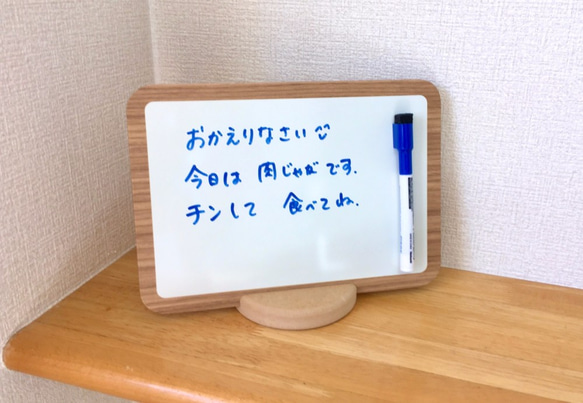 おかえりなさい
今日は 肉じゃがです.
チンして 食べてね.